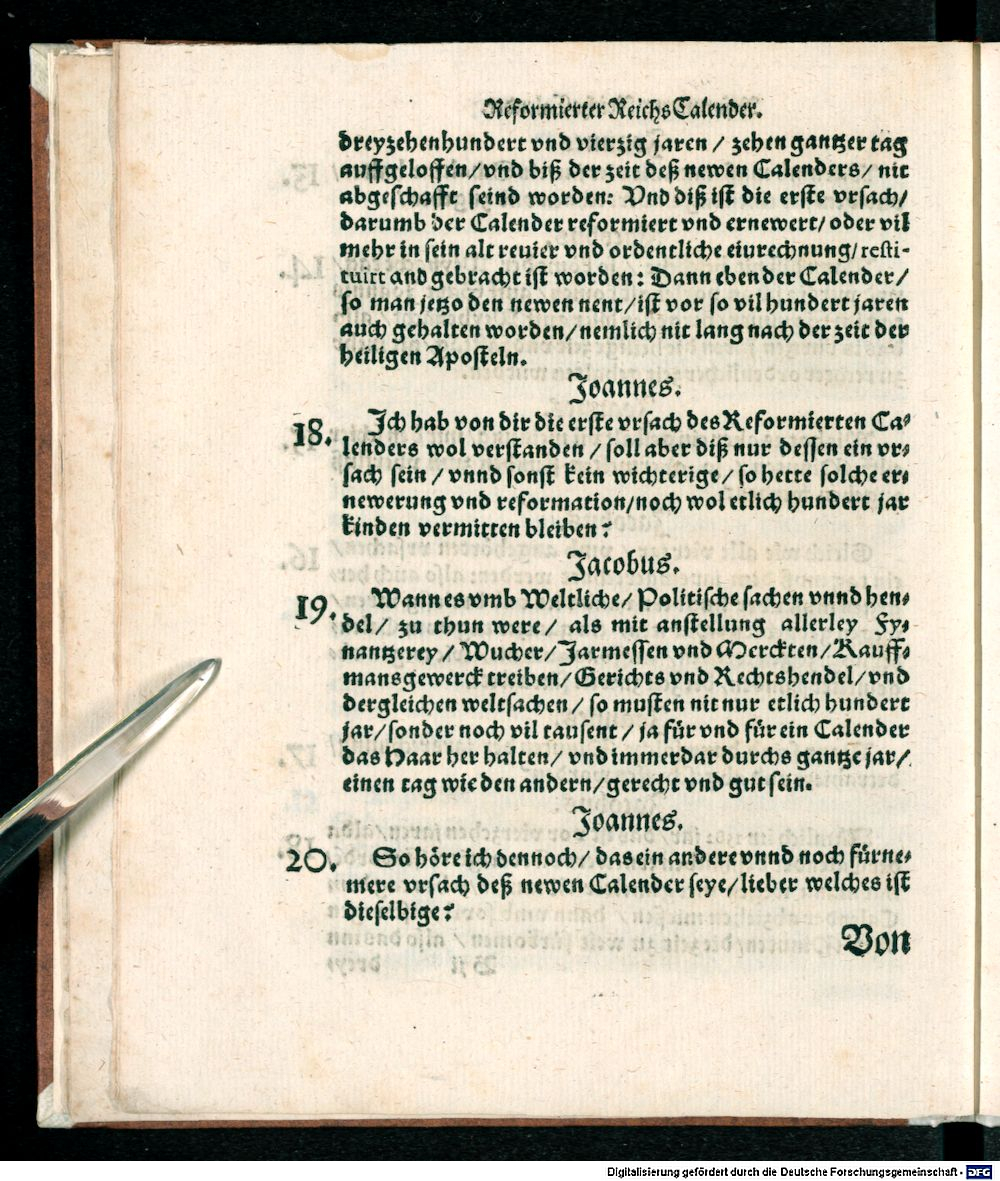 Reformierter Reichs Calender.
dreyzehenhundert vnd vierzig jaren / zehen gantzer tag
auffgeloffen/vnd biß der zeit deß newen Calenders/ nit
abgeschafft seind worden: Vnd diß ist die erste vrsach/
darumb der Calender reformiert vnd ernewert/ oder vil
mehr in sein alt reuier vnd ordentliche einrechnung/ resti-
tuirt and gebracht ist worden: Dann eben der Calender/
so man jetzo den newen nent/ist vor so vil hundert jaren
auch gehalten worden/nemlich nit lang nach der zeit der
heiligen Aposteln.
Joannes.
18. Ich hab von dir die erste vrsach des Reformierten Ca-
lenders wol verstanden / soll aber diß nur dessen ein vr-
sach sein / vnnd sonst kein wichterige/ so hette solche er-
newerung vnd reformation/noch wol etlich hundert jar
kinden vermitten bleiben?
Jacobus.
19. Wann es vmb Weltliche/ Politische sachen vnnd hen-
del/ zu thun were/ als mit anstellung allerley Fy-
nantzerey/ Wucher/ Jarmessen vnd Merckten/ Kauff-
mansgewerck treiben/ Gerichts vnd Rechtshendel/ vnd
dergleichen weltsachen/ so musten nit nur etlich hundert
jar/sonder noch vil tausent/ ja für vnd für ein Calender
das Haar her halten/ vnd immerdar durchs gantze jar/
einen tag wie den andern/gerecht vnd gut sein.
Joannes.
20. So höre ich dennoch/ das ein andere vnnd noch fürne-
mere vrsach deß newen Calender seye/lieber welches ist
dieselbige?
Von
Digitalisierung gefördert durch die Deutsche Forschungsgemeinschaft - DFG